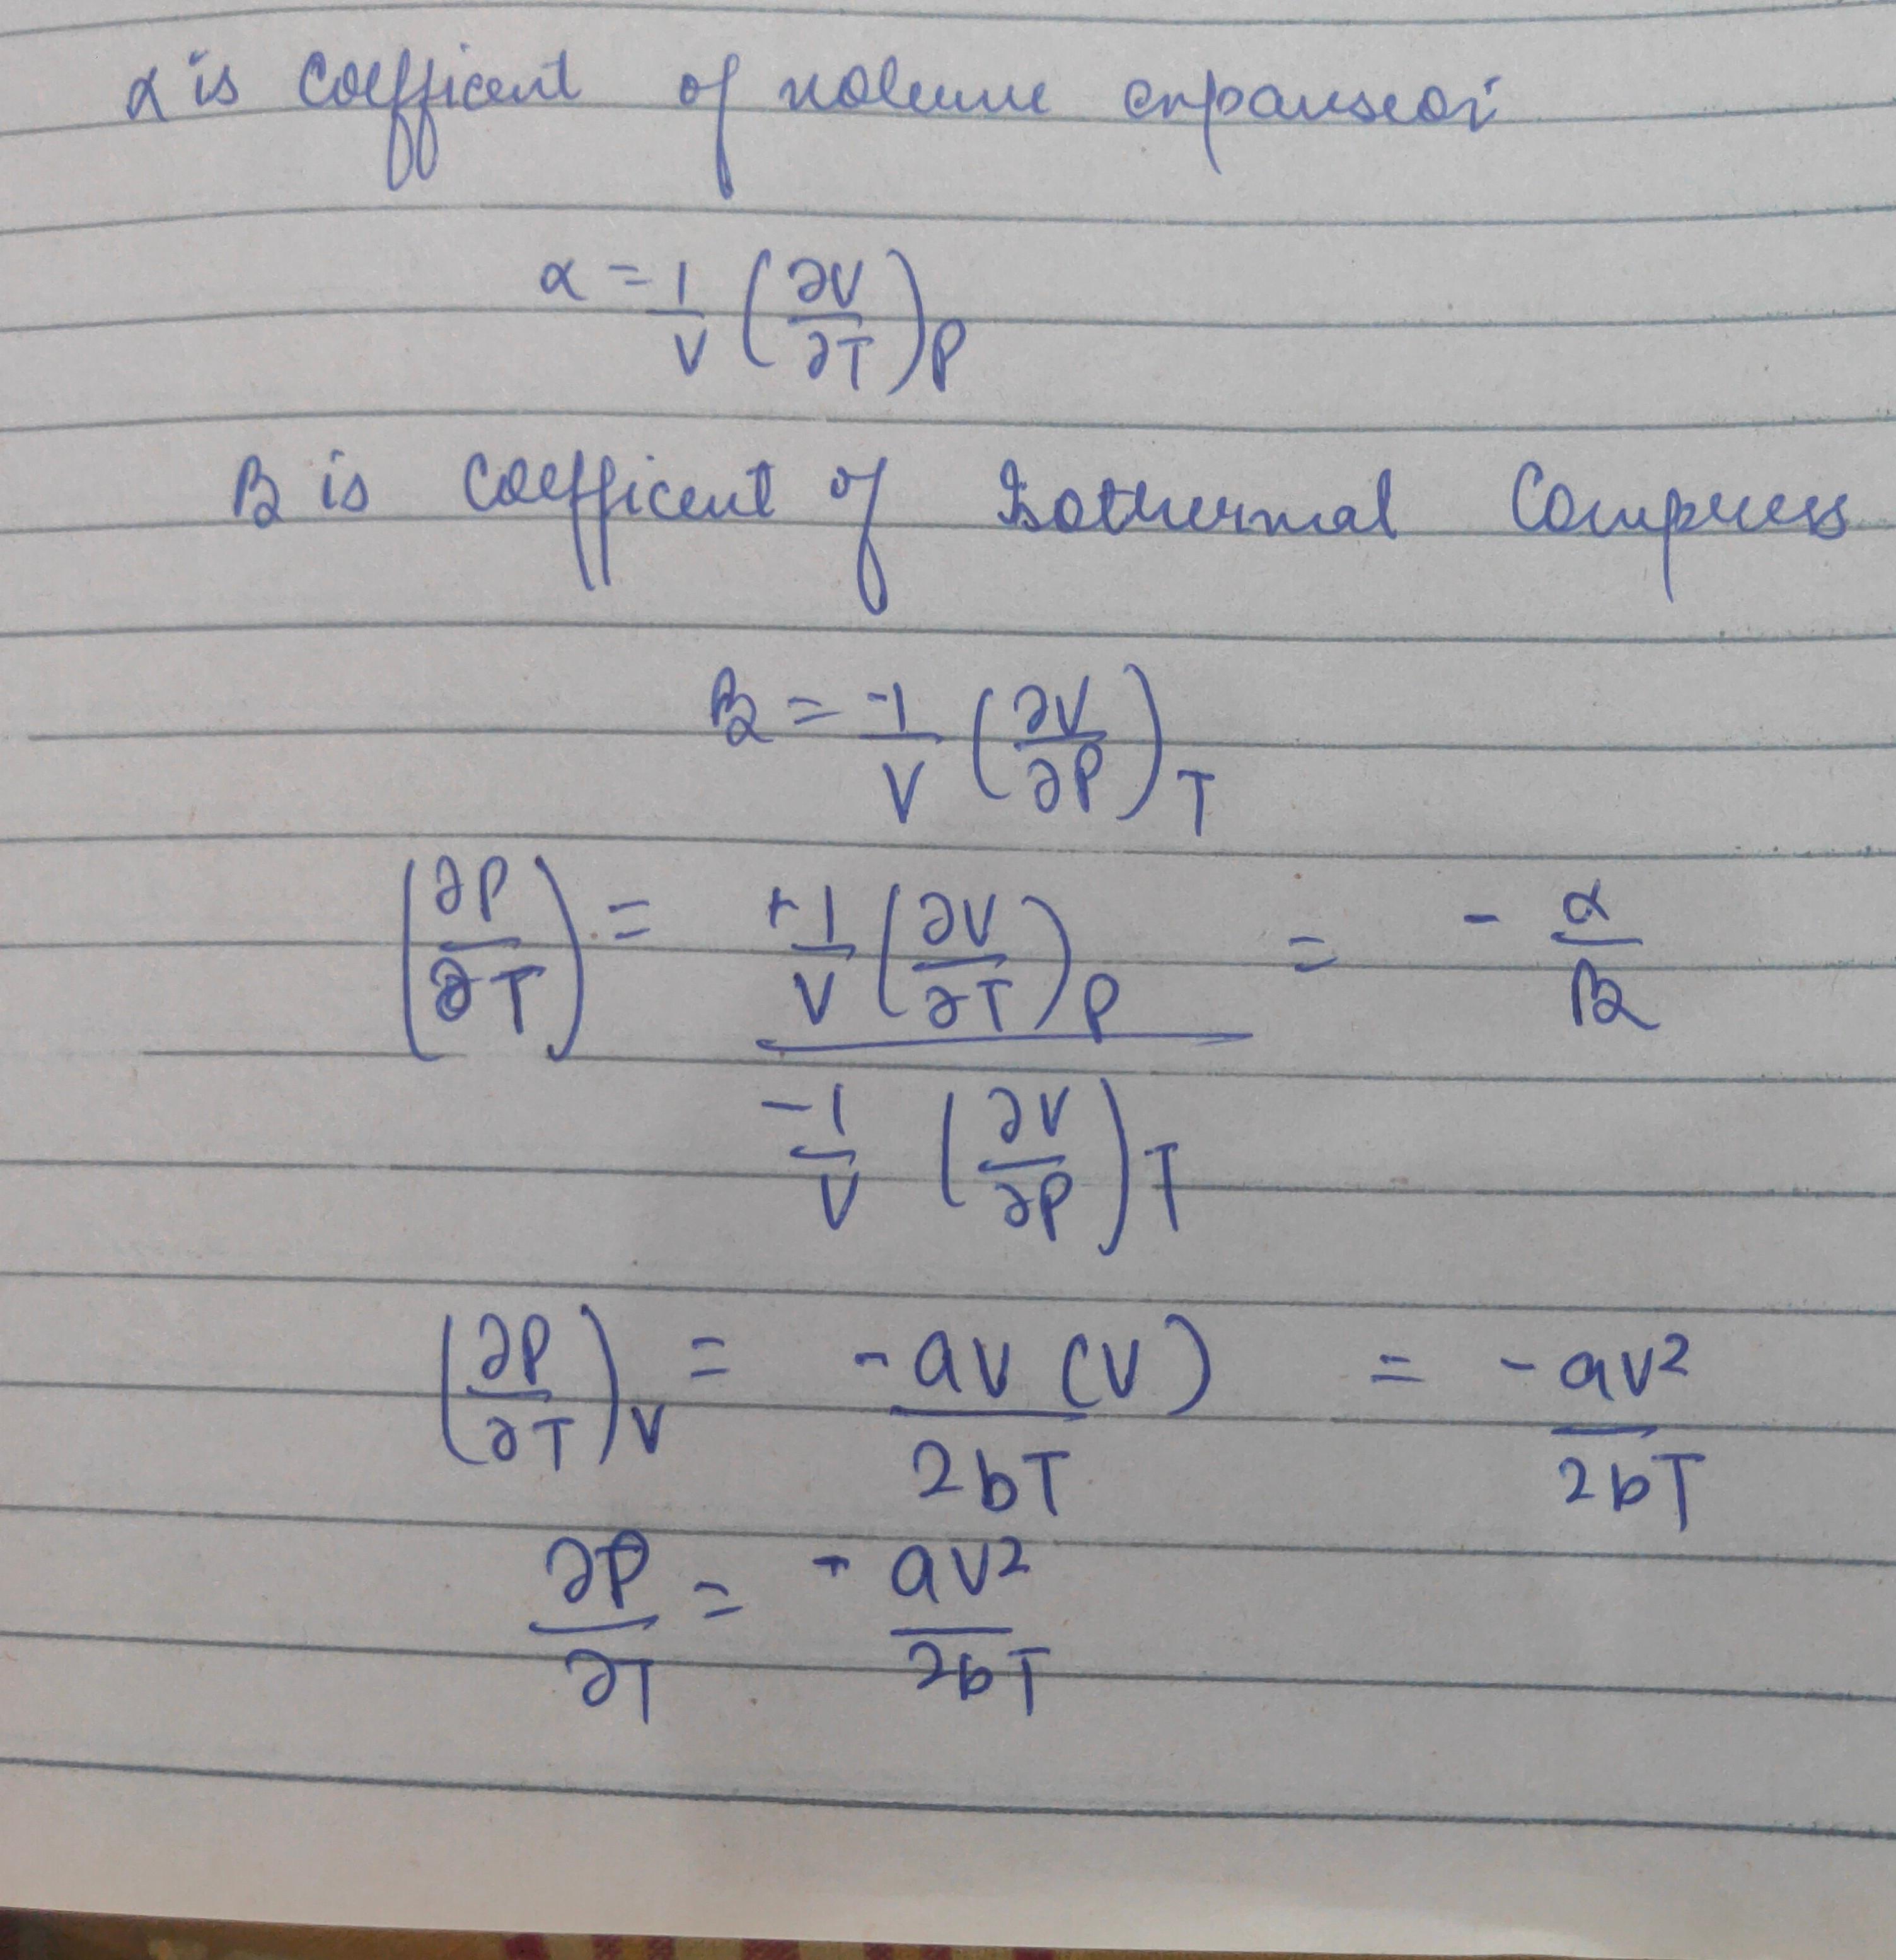 α is Coefficent of volume expansion
α = 1/V (∂V/∂T)P
B is Coefficent of Isothermal Compress
B = -1/V (∂V/∂P)T
(∂P/∂T) = +1/V (∂V/∂T)P / -1/V (∂V/∂P)T = - α/B
(∂P/∂T)V = -av(v)/2bT = -av²/2bT
∂P/∂T = - av²/2bT